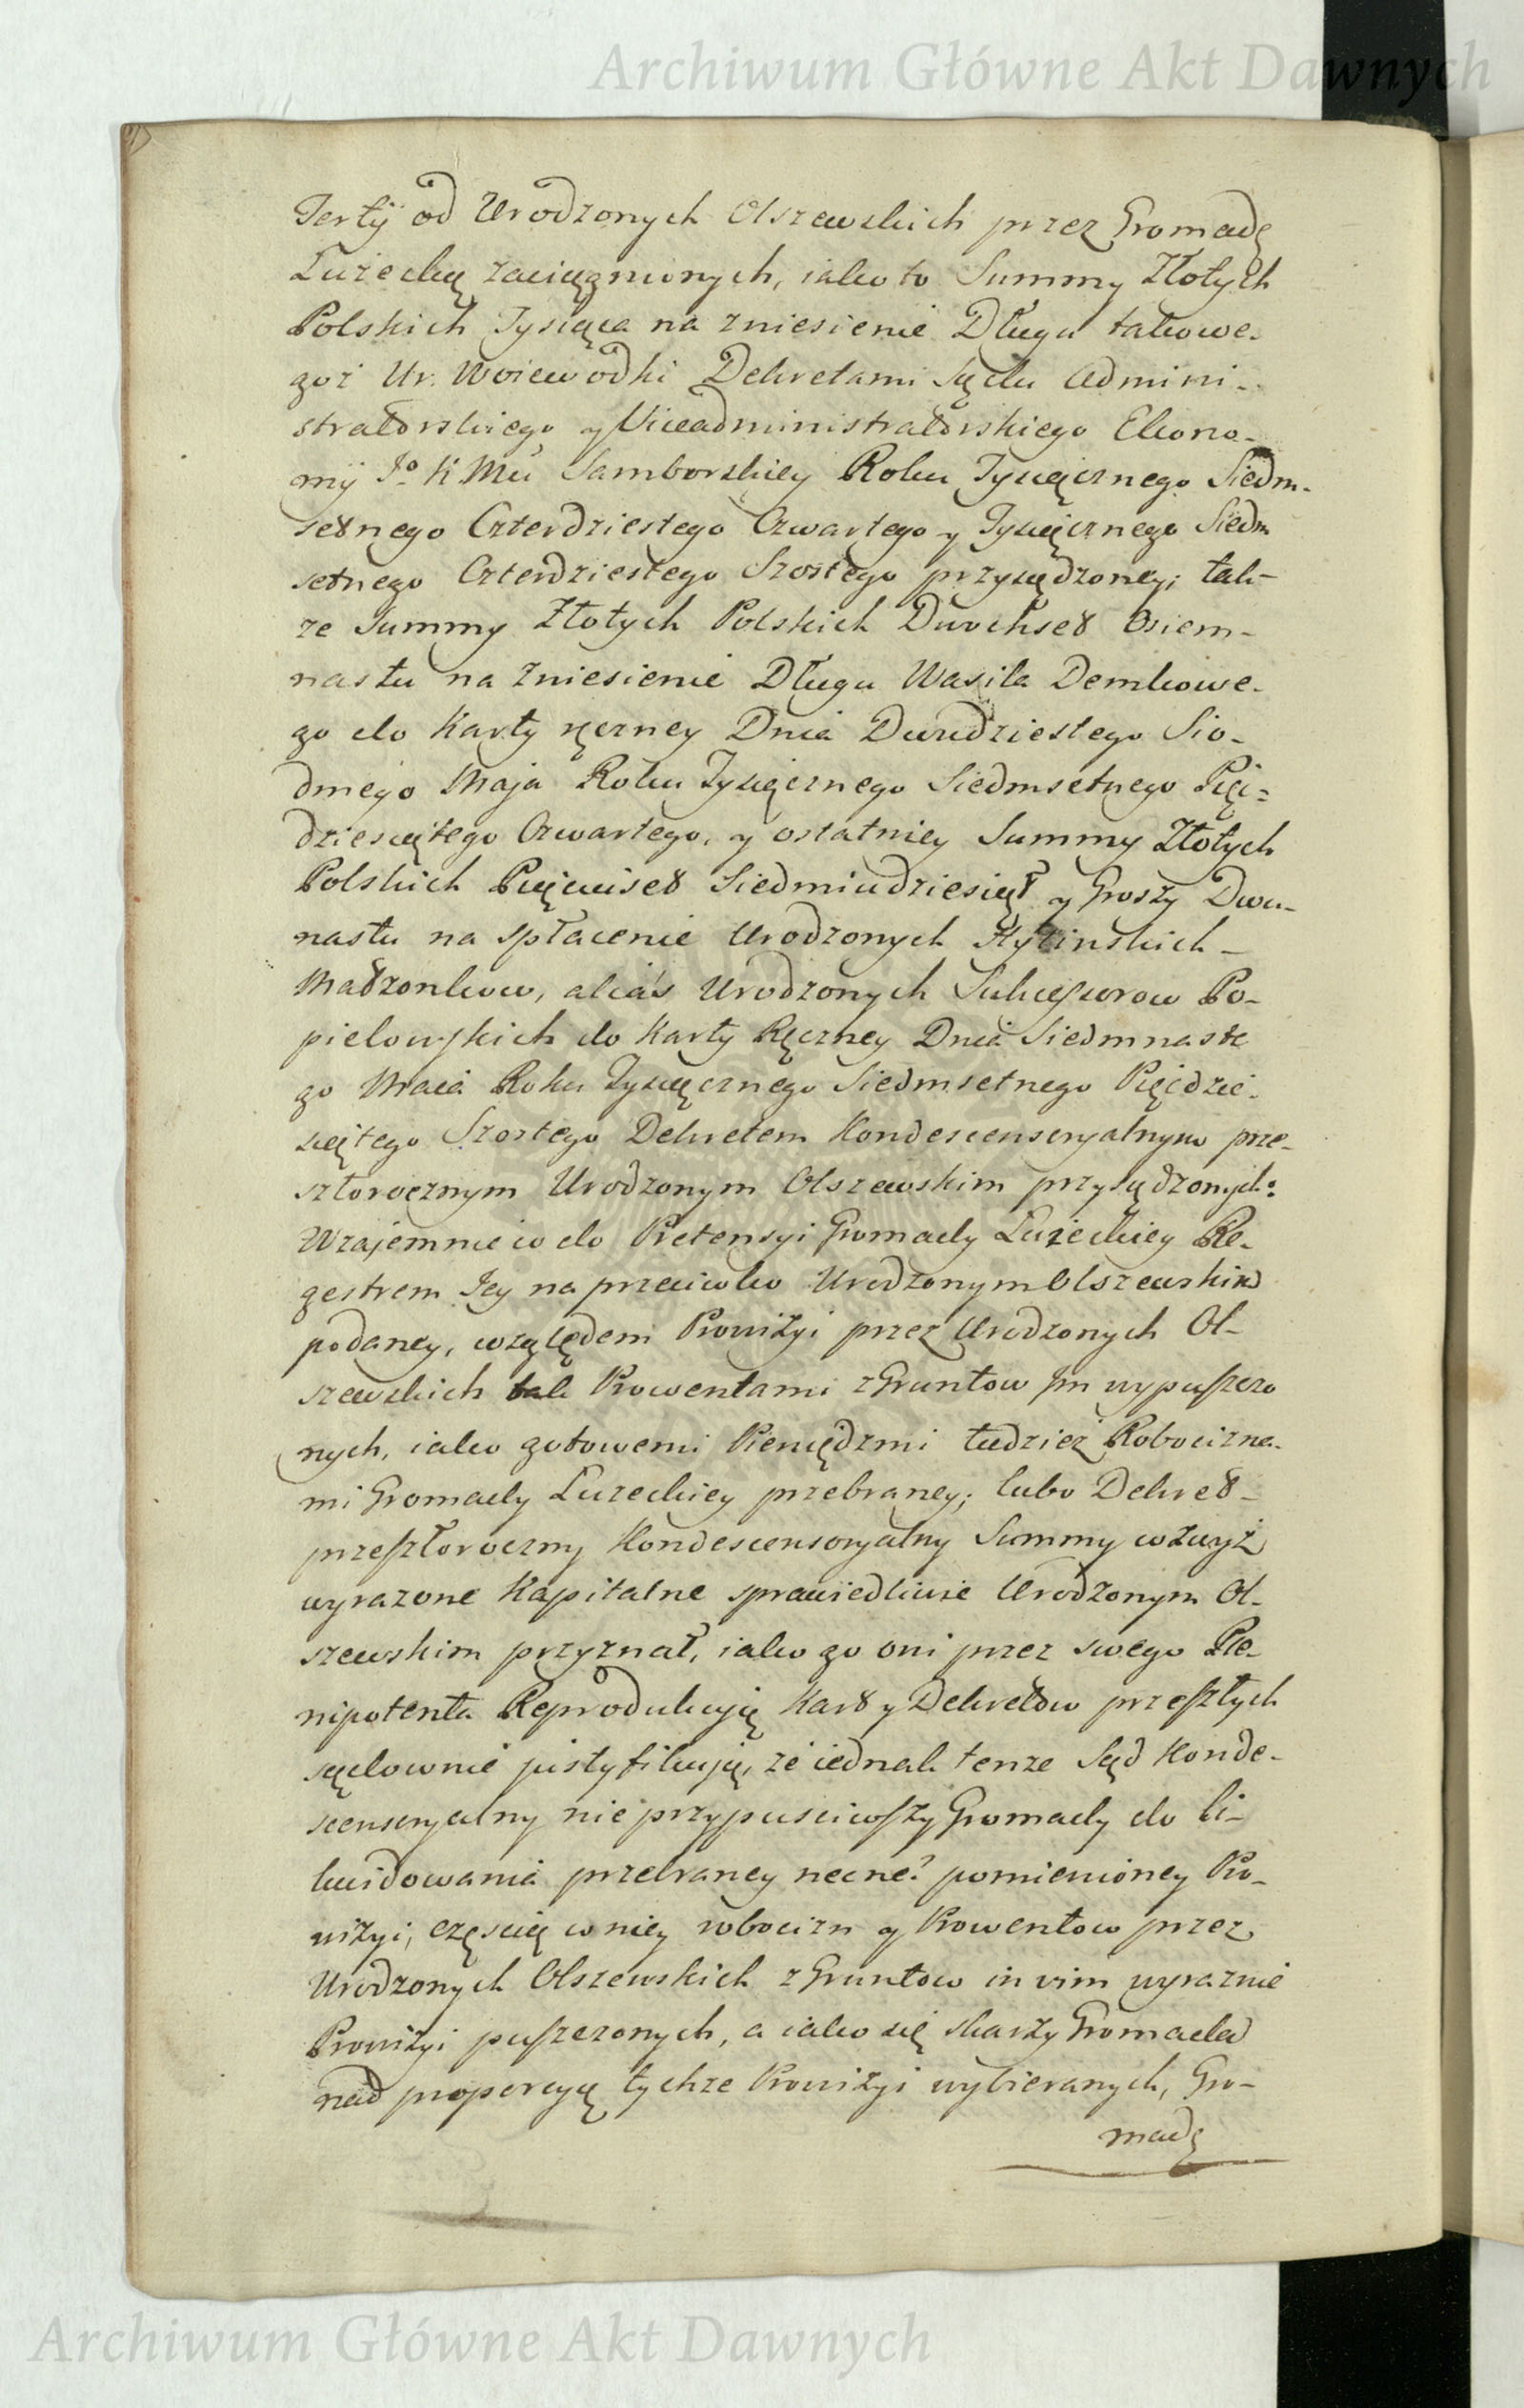 Archiwum Główne Akt Dawnych
Jertÿ od Urodzonych Olszewskich przez Gromadę
Łużecką zaciągnionych, iako to Summy Złotych
Polskich Tysiąca na zniesienie Długu takowe-
goż Ur. Woiewodki Dekretami Sądu Admini-
stratorskiego y Viceadministratorskiego Ekono-
mÿ Jo K Mci Samborskiey Roku Tysiącznego Siedm-
setnego Czterdziestego Czwartego y Tysiącznego Siedm
setnego Czterdziestego Szostego przysądzoney; tak-
ze Summy Złotych Polskich Dwochset Osiem-
nastu na zniesienie Długu Wasila Demkowe-
go do Karty ręczney Dnia Dwudziestego Sio-
dmego Maja Roku Tysiącznego Siedmsetnego Pięć=
dziesiątego Czwartego, y ostatniey Summy Złotych
Polskich Pięciuset Siedmiudziesiąt y Groszy Dwu-
nastu na spłacenie Urodzonych
Małzonkow, alias Urodzonych Sukcessorow Po-
pielowskich do Karty Ręczney Dnia Siedmnaste
go Maia Roku Tysiącznego Siedmsetnego Pięćdzie-
siątego Szostego Dekretem Kondescensoryalnym prze-
szłorocznym Urodzonym Olszewskim przysądzonych:
Wzajemnie co do Pretensyi Gromady Łużeckiey Re-
gestrem Jey na przeciwko Urodzonym Olszewskim
podaney, względem Prowizyi przez Urodzonych Ol-
szewskich tak Prowentami z Gruntow Im wypuszczo
nych, iako gotowemi Pieniędzmi tudziez Robocizna-
mi Gromady Łuzeckiey przebraney; lubo Dekret-
przeszłoroczny Kondescensoryalny Summy wzwyż
wyrazone Kapitalne sprawiedliwie Urodzonym Ol-
szewskim przyznał, iako go oni przez swego Ple-
nipotenta Reprodukcyą Kart y Dekretow przeszłych
sądownie justyfikują, że iednak tenze Sąd Konde-
scensoryalny nie przypusciwszy Gromady do li-
kwidowania przebraney necne? pomienioney Pro-
wizyi, częscią w niey robocizn y Prowentow przez
Urodzonych Olszewskich z Gruntow in vim wyraznie
Prowizyi puszczonych, a iako się skarzy Gromada
nad proporcyą tychze Prowizyi wybieranych, Gro-
madę
Archiwum Główne Akt Dawnych